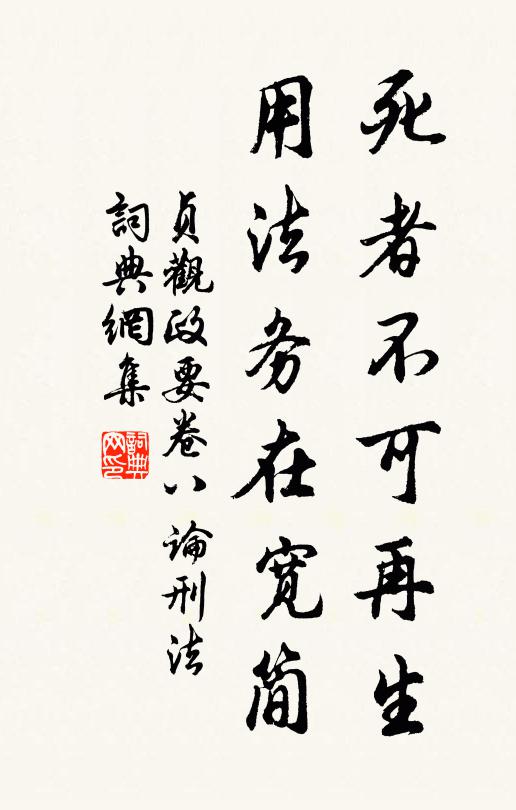 死者不可再生
用法务在宽简
貞觀政要卷八 論刑法
詞典網集
詞典网印